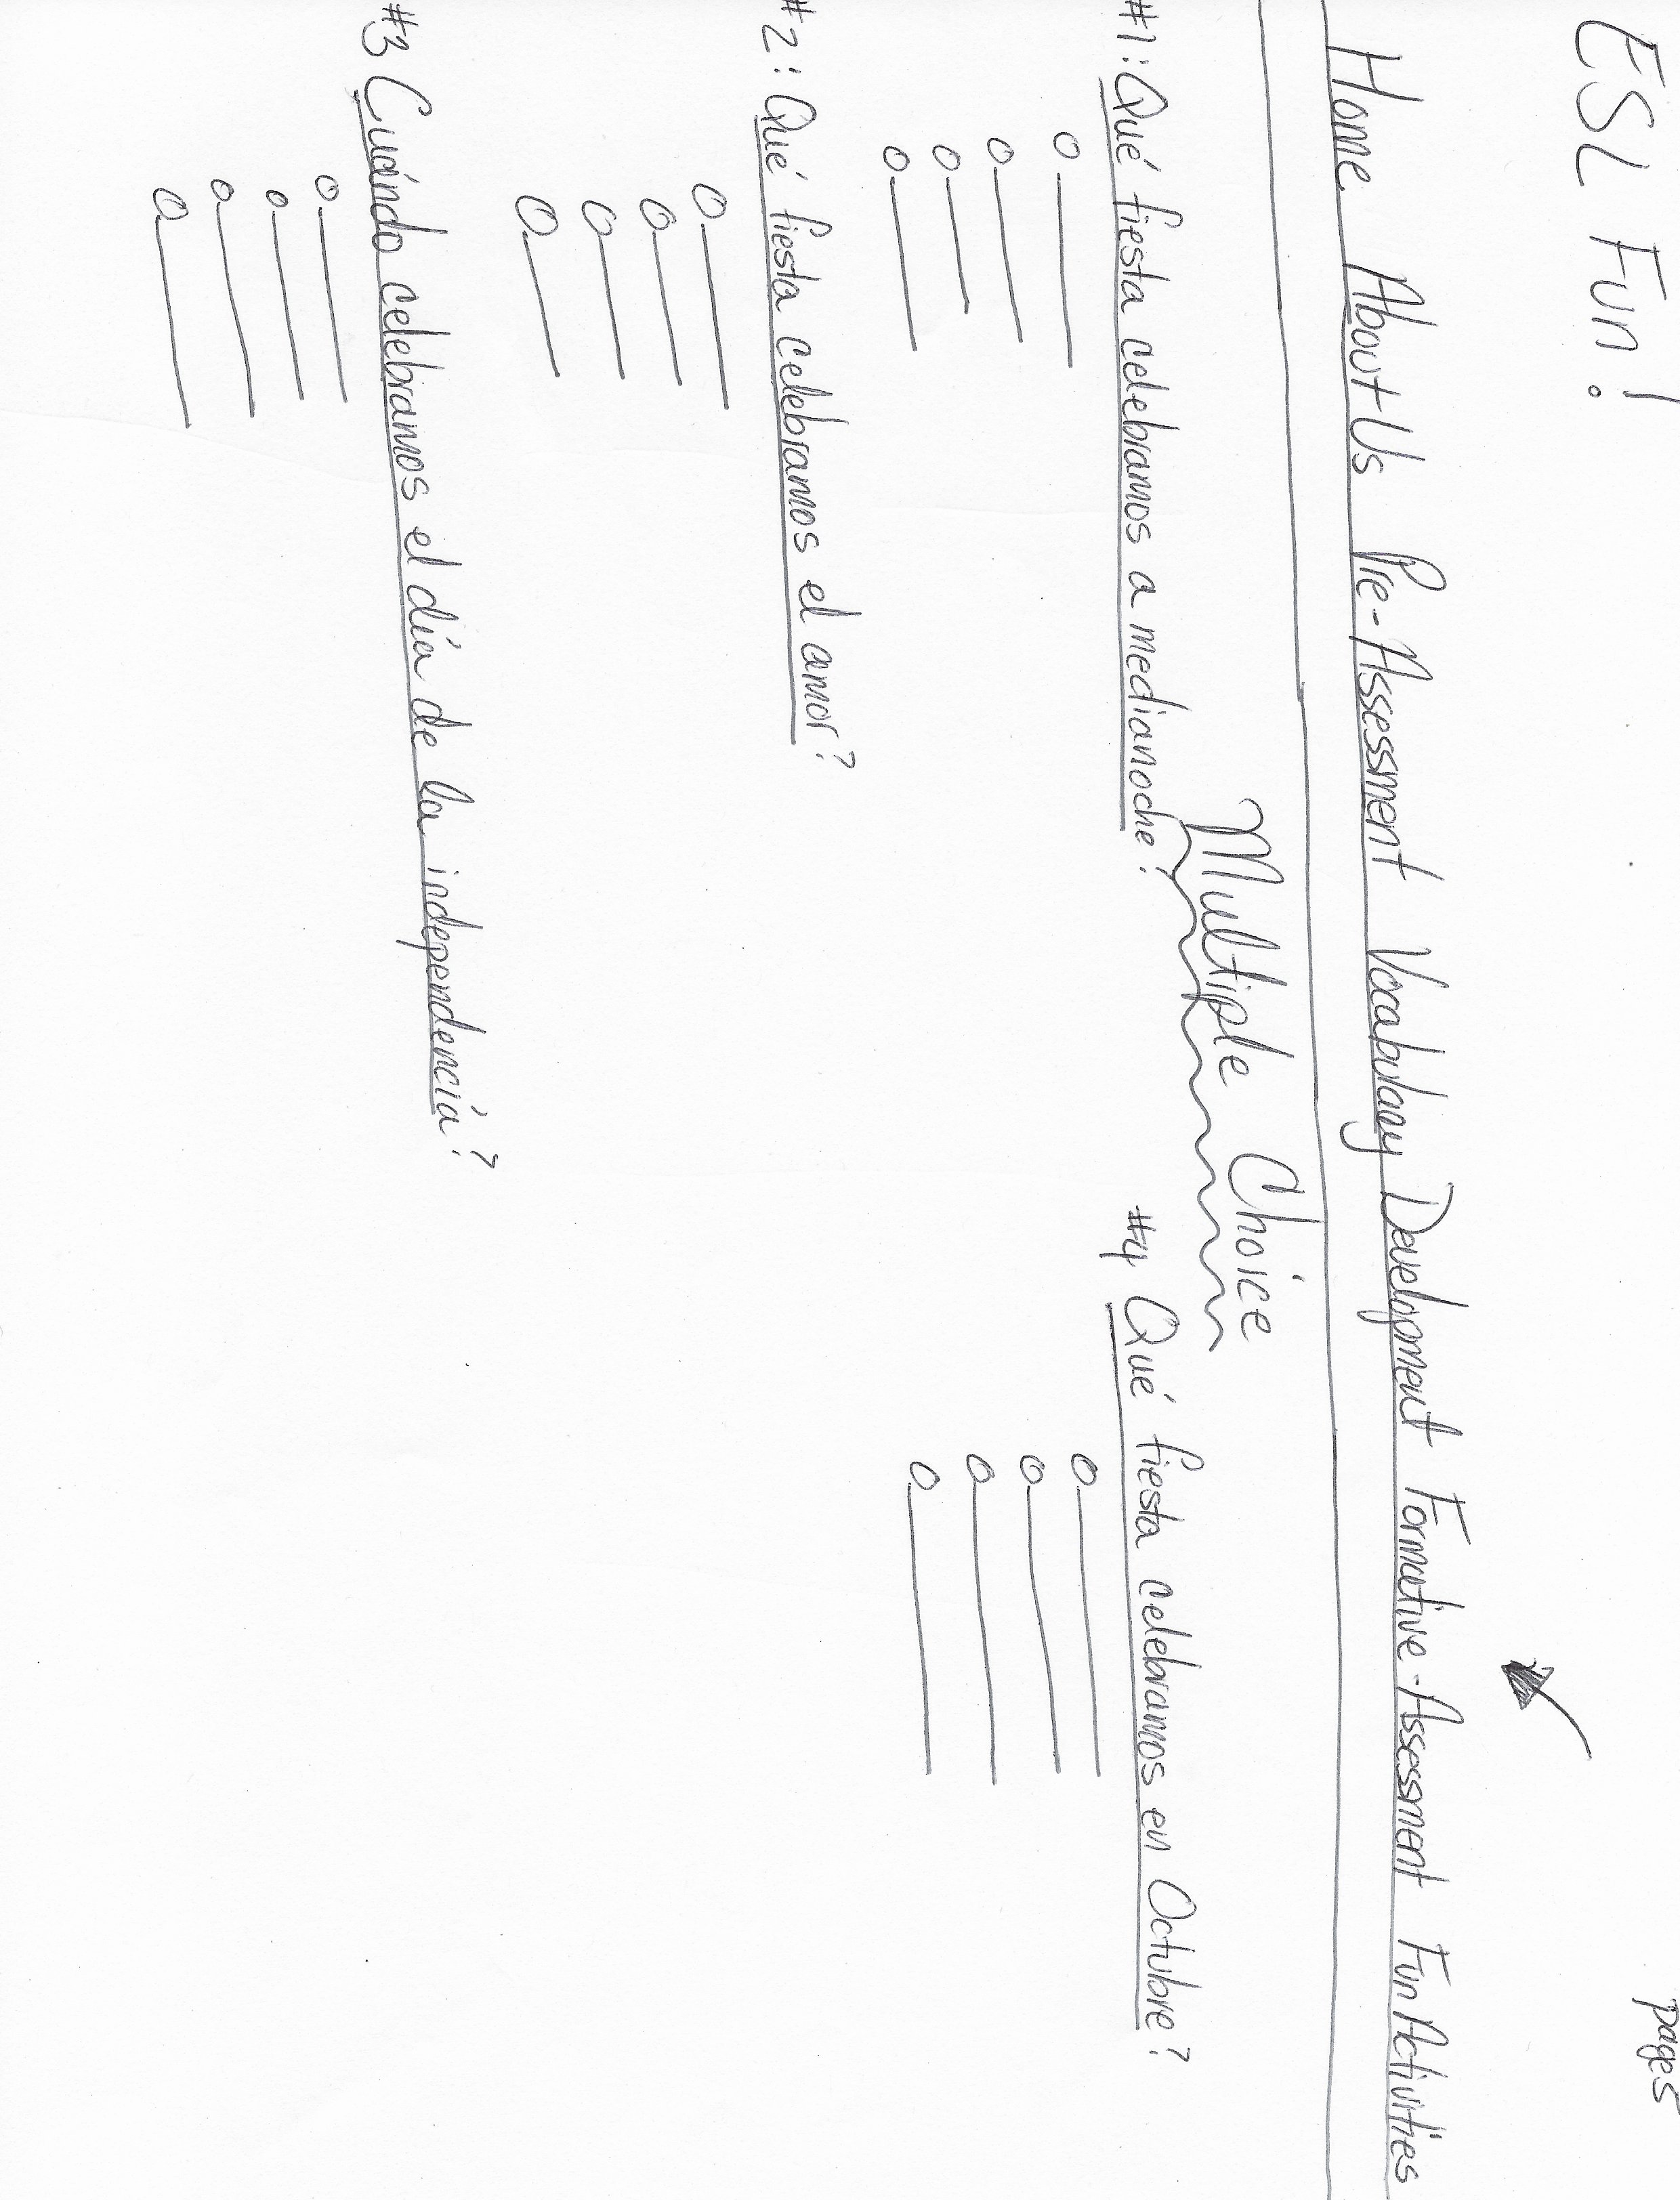 ESL Fun!
page 5
Home About Us Pre-Assessment Vocabulary Development Formative-Assessment Fun Activities
Multiple Choice
#1: Qué fiesta celebramos a medianoche?
#2: Qué fiesta celebramos el amor?
#3 Cuándo celebramos el día de la independencia?
#4 Qué fiesta celebramos en Octubre?